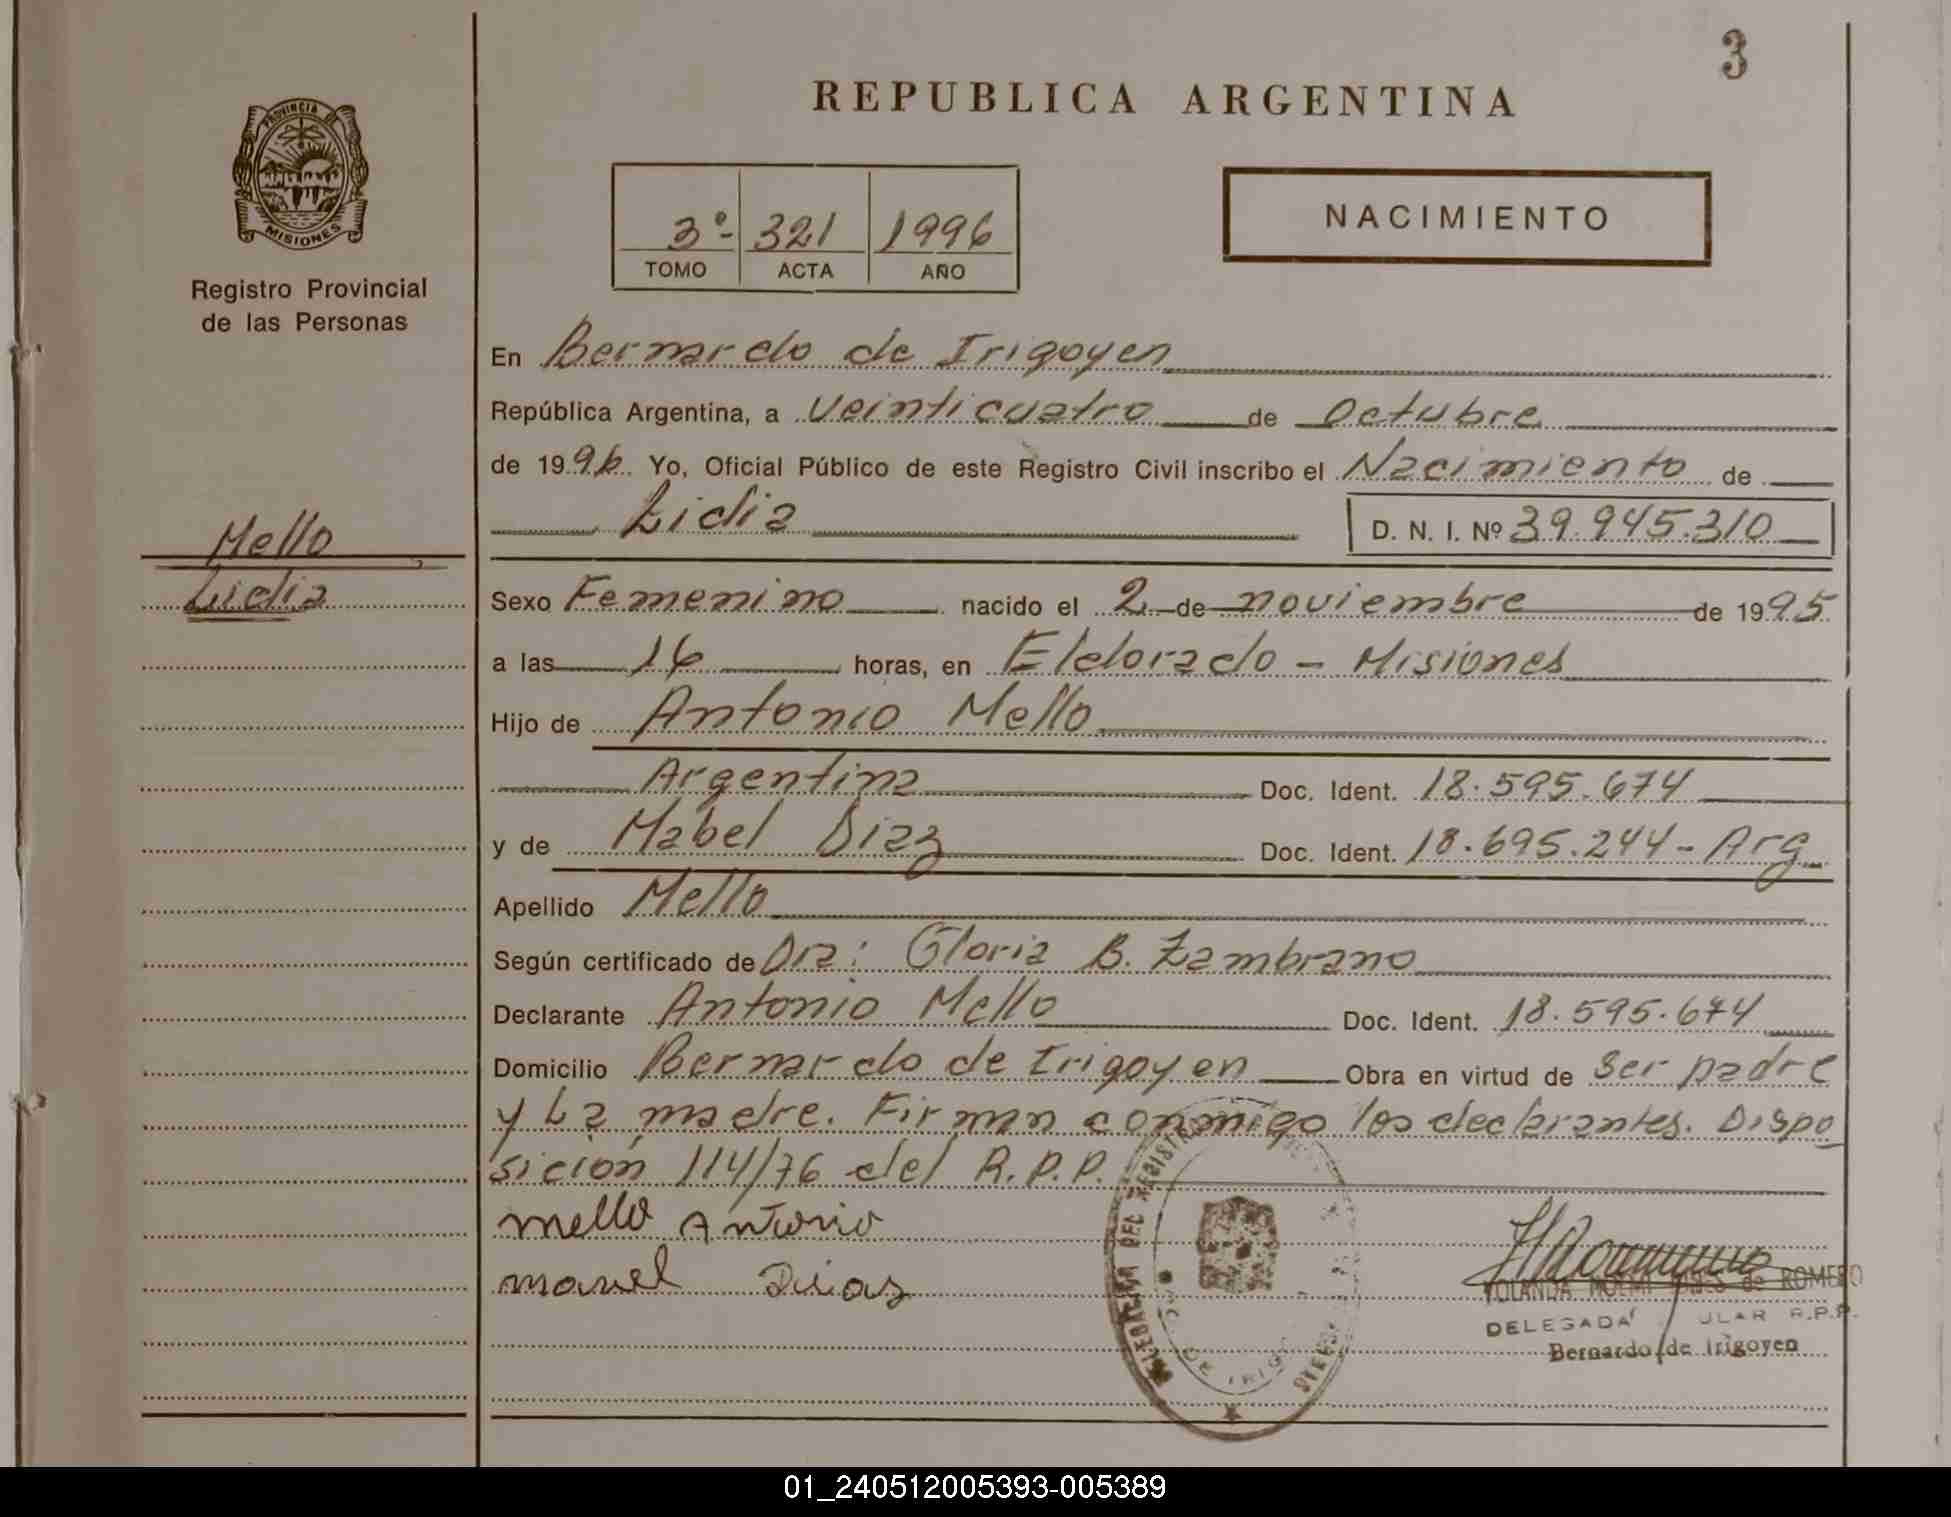 3
REPUBLICA ARGENTINA
PROVINCIA DE
MISIONES
Registro Provincial
de las Personas
3º- 321 1996
TOMO ACTA AÑO
NACIMIENTO
En Bernardo de Irigoyen
República Argentina, a veinticuatro de Octubre
de 1996 Yo, Oficial Público de este Registro Civil inscribo el Nacimiento de
Lidia D. N. I. Nº 39.945.310
Mello
Lidia
Sexo Femenino nacido el 2 de noviembre de 1995
a las 16 horas, en Eldorado - Misiones
Hijo de Antonio Mello
Argentina Doc. Ident. 18.595.674
y de Mabel Diaz Doc. Ident. 18.695.244 - Arg
Apellido Mello
Según certificado de Dra: Gloria B. Zambrano
Declarante Antonio Mello Doc. Ident. 18.595.674
Domicilio Bernardo de Irigoyen Obra en virtud de ser padre
y La madre. Firman conmigo los declarantes. Dispo
sición 114/76 del R.P.P.
mello Antonio
mavel Dias
DEL REGISTR
DE IRIG
YOLANDA NOEMI de ROMERO
DELEGADA ULAR R.P.P.
Bernardo de Irigoyen
01_240512005393-005389